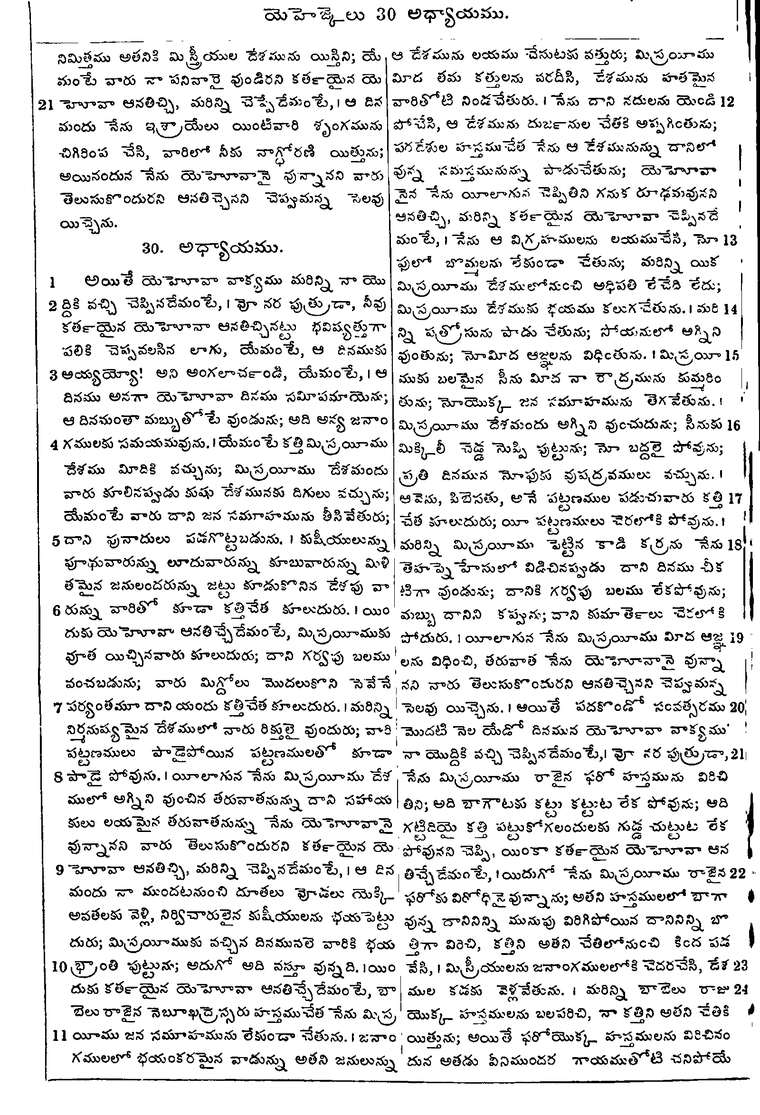 యెహెజ్కేలు 30 అధ్యాయము.
నిమిత్తము అతనికి మిస్రీయుల దేశమును యిస్తిని; యే
మంటే వారు నా పనివారై వుండిరని కర్తయైన యె
21 హోవా ఆనతిచ్చి, మరిన్ని చెప్పేదేమంటే, । ఆ దిన
మందు నేను ఇశ్రాయేలు యింటివారి శృంగమును
చిగిరింప చేసి, వారిలో నీకు నాగ్ధోరణి యిత్తును;
అయినందున నేను యెహోవానై వున్నానని వారు
తెలుసుకొందురని ఆనతిచ్చెనని చెప్పుమన్న సెలవు
యిచ్చెను.
30. అధ్యాయము.
1 అయితే యెహోవా వాక్యము మరిన్ని నా యొ
2 ద్దికి వచ్చి చెప్పినదేమంటే, । వో నర పుత్రుడా, నీవు
కర్తయైన యెహోవా ఆనతిచ్చినట్టు భవిష్యత్తుగా
పలికి చెప్పవలసిన లాగు, యేమంటే, ఆ దినముకు
3 అయ్యయ్యో! అని అంగలార్చండి, యేమంటే, । ఆ
దినము అనగా యెహోవా దినము సమీపమాయెను;
ఆ దినమంతా మబ్బుతోటే వుండును; అది అన్య జనాం
4 గములకు సమయమవును. । యేమంటే కత్తి మిస్రయీము
దేశము మీదికి వచ్చును; మిస్రయీము దేశమందు
వారు కూలినప్పుడు కుషు దేశమునకు దిగులు వచ్చును;
యేమంటే వారు దాని జన సమూహమును తీసివేతురు;
5 దాని పునాదులు పడగొట్టబడును. । కుషీయులున్ను
పూథువారున్ను లూదువారున్ను కూబువారున్ను మిళి
తమైన జనులందరున్ను జట్టు కూడుకొనిన దేశపు వా
6 రున్ను వారితో కూడా కత్తిచేత కూలుదురు. । యిం
దుకు యెహోవా ఆనతిచ్చేదేమంటే, మిస్రయీముకు
వూత యిచ్చినవారు కూలుదురు; దాని గర్వపు బలము
వంచబడును; వారు మిగ్దోలు మొదలుకొని సెవేనే
7 పర్యంతమూ దాని యందు కత్తిచేత కూలుదురు. । మరిన్ని
నిర్మనుష్యమైన దేశములలో వారు రిక్తులై వుందురు; వారి
పట్టణములు పాడైపోయిన పట్టణములతో కూడా
8 పాడై పోవును. । యీలాగున నేను మిస్రయీము దేశ
ములో అగ్నిని వుంచిన తరువాతనున్ను దాని సహాయ
కులు లయమైన తరువాతనున్ను నేను యెహోవానై
వున్నానని వారు తెలుసుకొందురని కర్తయైన యె
9 హోవా ఆనతిచ్చి, మరిన్ని చెప్పినదేమంటే, । ఆ దిన
మందు నా ముందటనుంచి దూతలు వోడలు యెక్కి
అవతలకు వెళ్లి, నిర్విచారులైన కుషీయులను భయపెట్టు
దురు; మిస్రయీముకు వచ్చిన దినమువలె వారికి భయ
10 భ్రాంతి పుట్టును; అదుగో అది వస్తూ వున్నది. । యిం
దుకు కర్తయైన యెహోవా ఆనతిచ్చేదేమంటే, బా
బెలు రాజైన నెబూఖద్రెస్సరు హస్తముచేత నేను మిస్ర
11 యీము జన సమూహమును లేకుండా చేతును. । జనాం
గములలో భయంకరమైన వాడున్ను అతని జనులున్ను
ఆ దేశమును లయము చేసుటకు వత్తురు; మిస్రయీము
మీద తమ కత్తులను వరదీసి, దేశమును హతమైన
వారితోటి నిండచేతురు. । నేను దాని నదులను యెండి 12
పోచేసి, ఆ దేశమును దుర్జనుల చేతికి అప్పగింతును;
పగదేశుల హస్తముచేత నేను ఆ దేశమునున్ను దానిలో
వున్న సమస్తమునున్ను పాడుచేతును; యెహోవా
నైన నేను యీలాగున చెప్పితిని గనుక రూఢమవునని
ఆనతిచ్చి, మరిన్ని కర్తయైన యెహోవా చెప్పినదే
మంటే, । నేను ఆ విగ్రహములను లయముచేసి, నో 13
పులో బొమ్మలను లేకుండా చేతును; మరిన్ని యిక
మిస్రయీము దేశములోనుంచి అధిపతి లేచేది లేదు;
మిస్రయీము దేశముకు భయము కలుగచేతును. । మరి 14
న్ని పత్రోసును పాడు చేతును; సోయనులో అగ్నిని
వుంతును; నోమీద ఆజ్ఞలను విధింతును. । మిస్రయీ 15
ముకు బలమైన సీను మీద నా రౌద్రమును కుమ్మరిం
తును; నోయొక్క జన సమూహమును తెగవేతును. ।
మిస్రయీము దేశమందు అగ్నిని వుంచుదును; సీనుకు 16
మిక్కిలీ చెడ్డ నొప్పి పుట్టును; నో బద్దలై పోవును;
ప్రతి దినమున నోఫుకు వుపద్రవములు వచ్చును. ।
ఆవెను, పిబెసతు, అనే పట్టణముల పడుచువారు కత్తి 17
చేత కూలుదురు; యీ పట్టణములు చెరలోకి పోవును. ।
మరిన్ని మిస్రయీము పెట్టిన కాడి కర్రను నేను 18
తెహప్నెహేసులో విడిచినప్పుడు దాని దినము చీక
టిగా వుండును; దానికి గర్వపు బలము లేకపోవును;
మబ్బు దానిని కప్పును; దాని కుమార్తెలు చెరలోకి
పోదురు. । యీలాగున నేను మిస్రయీము మీద ఆజ్ఞ 19
లను విధించి, తరువాత నేను యెహోవానై వున్నా
నని వారు తెలుసుకొందురని ఆనతిచ్చెనని చెప్పుమన్న
సెలవు యిచ్చెను. । అయితే పదకొండో సంవత్సరము 20
మొదటి నెల యేడో దినమున యెహోవా వాక్యము
నా యొద్దికి వచ్చి చెప్పినదేమంటే, । వో నర పుత్రుడా, 21
నేను మిస్రయీము రాజైన ఫరో హస్తమును విరిచి
తిని; అది బాగౌటకు కట్టు కట్టుట లేక పోవును; అది
గట్టిదియై కత్తి పట్టుకోగలందులకు గుడ్డ చుట్టుట లేక
పోవునని చెప్పి, యింకా కర్తయైన యెహోవా ఆన
తిచ్చేదేమంటే, । యిదుగో నేను మిస్రయీము రాజైన 22
ఫరోకు విరోధినై వున్నాను; అతని హస్తములలో బాగా
వున్న దానినిన్ని మునుపు విరిగిపోయిన దానినిన్ని బొ
త్తిగా విరిచి, కత్తిని అతని చేతిలోనుంచి కింద పడ
వేసి, । మిస్రీయులను జనాంగములలోకి చెదరచేసి, దేశ 23
ముల కడకు వెళ్లవేతును. । మరిన్ని బాబెలు రాజు 24
యొక్క హస్తములను బలపరిచి, నా కత్తిని అతని చేతికి
యిత్తును; అయితే ఫరోయొక్క హస్తములను విరిచినం
దున అతడు వీనిముందర గాయముతోటి చనిపోయే